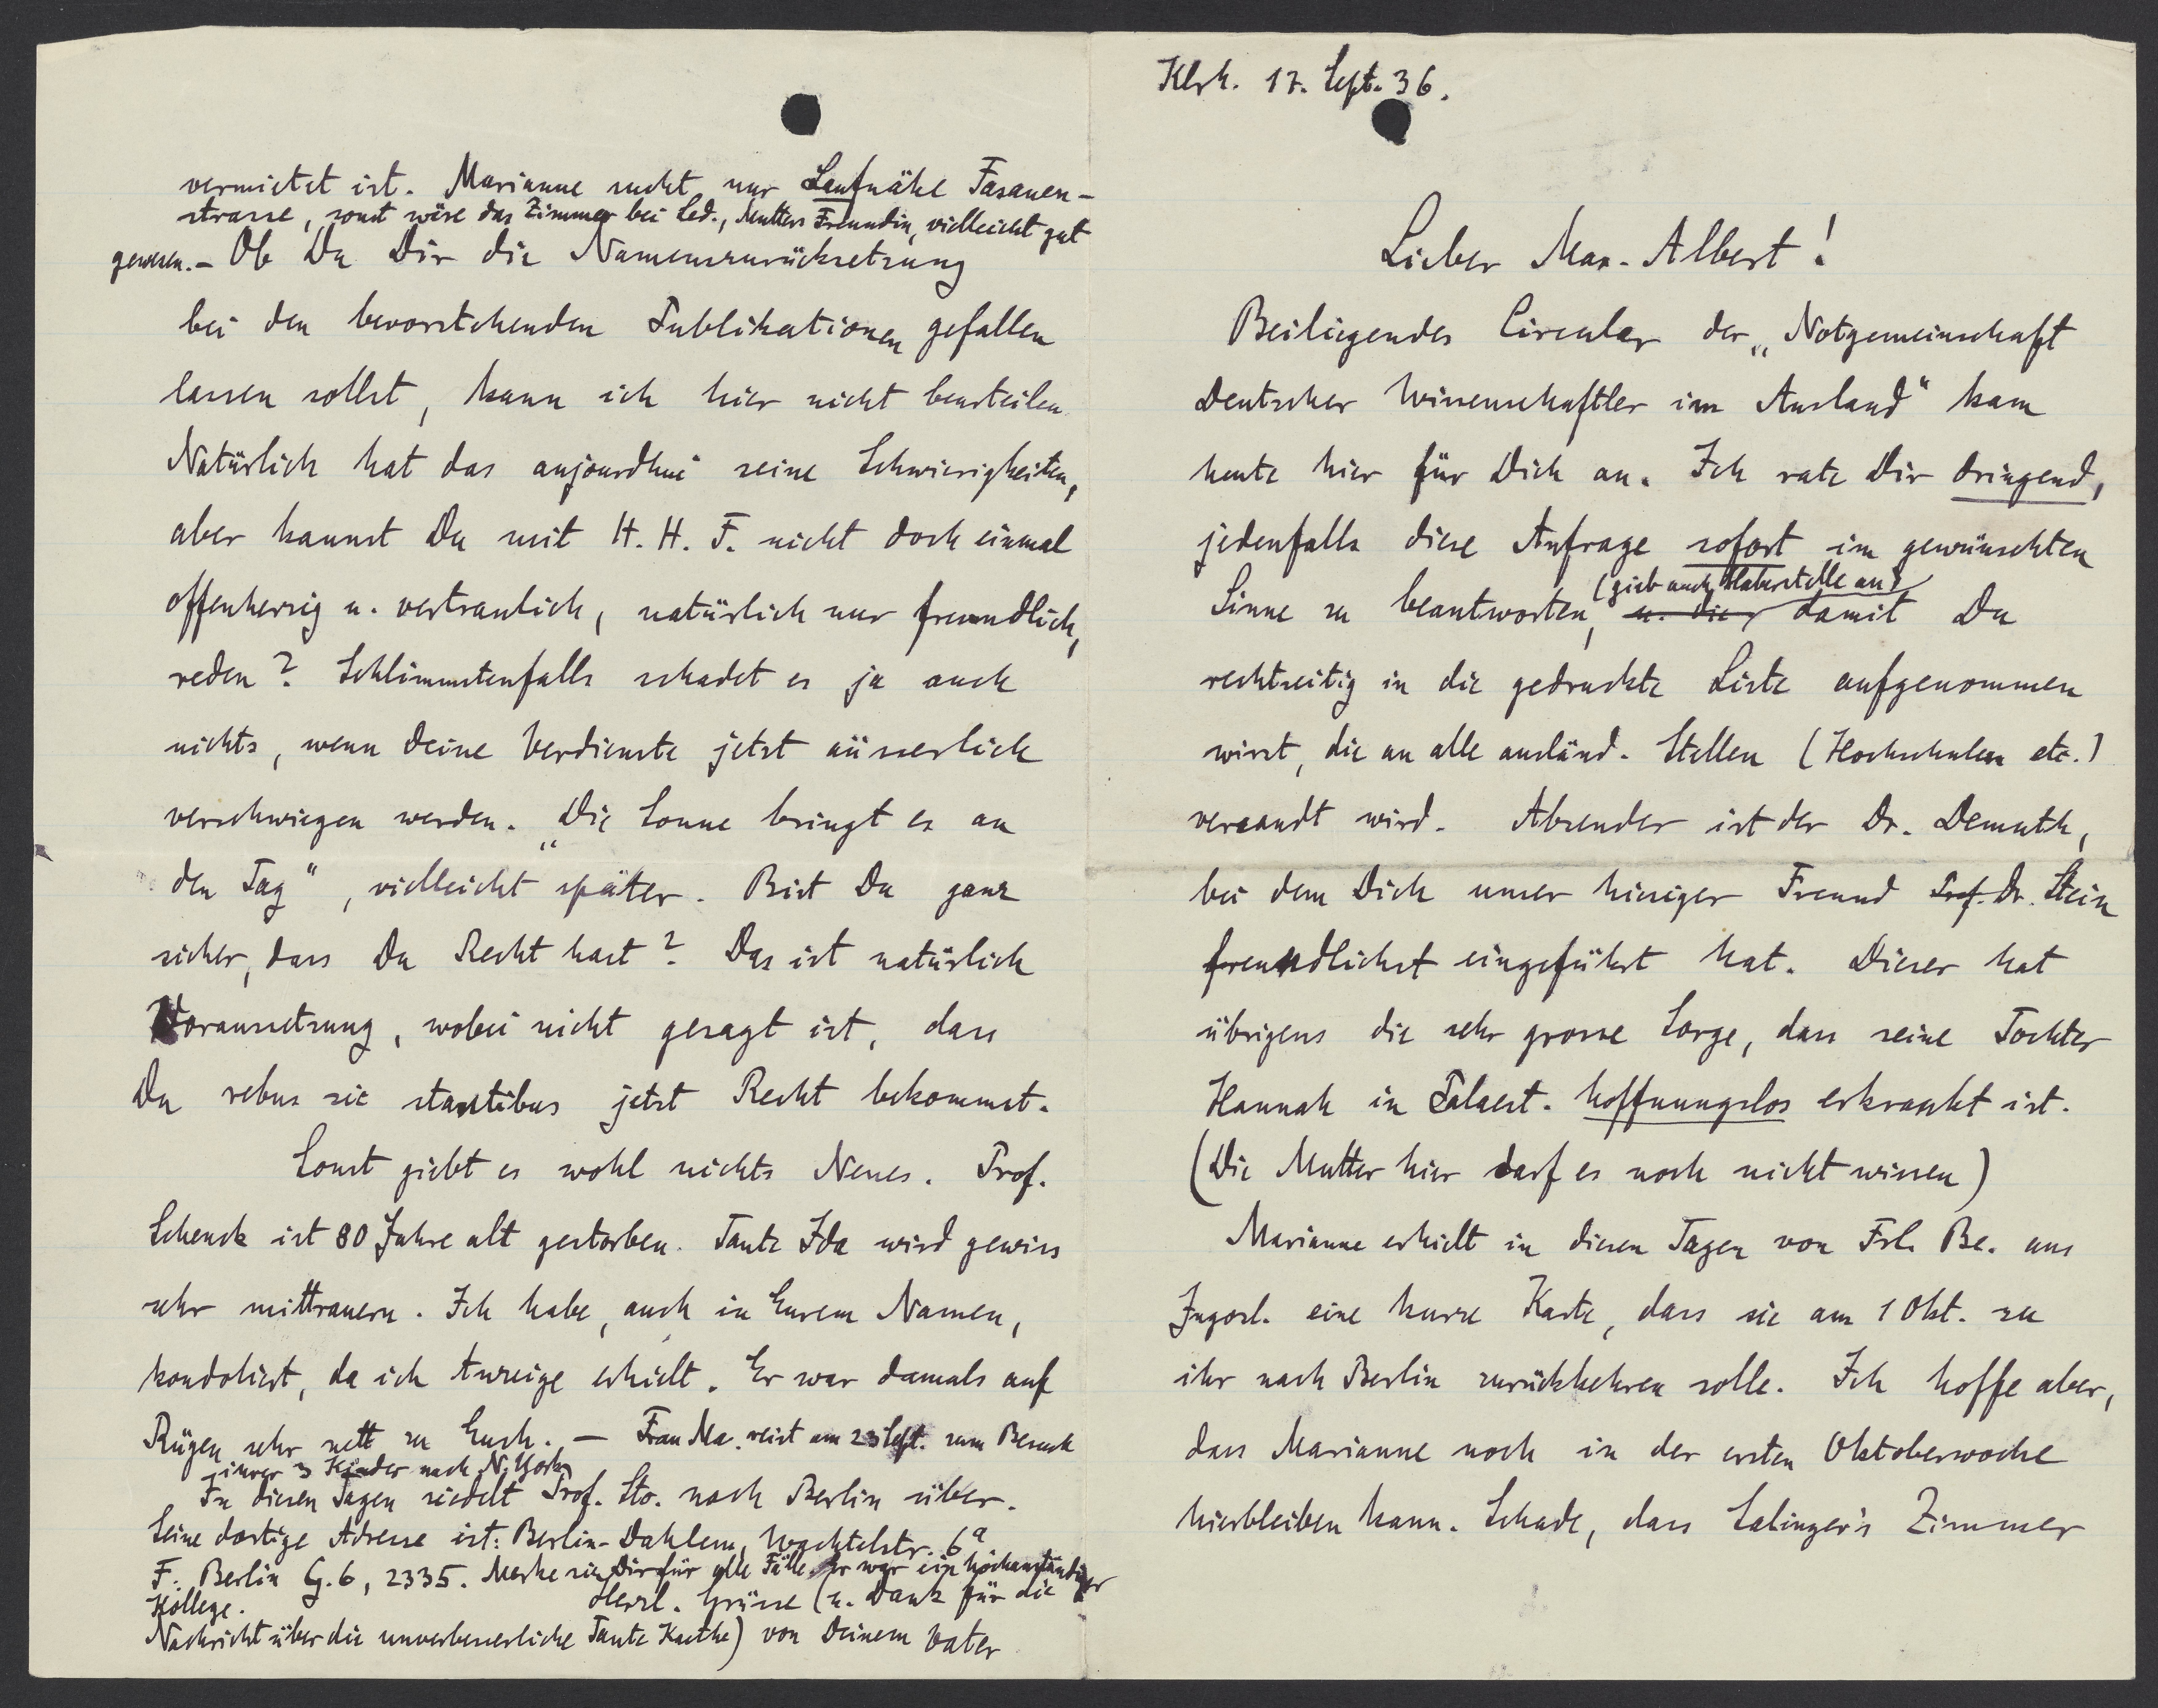 Klrh. 17. Sept. 36.
Lieber Max-Albert!
Beiliegendes Circular der „Notgemeinschaft
Deutscher Wissenschaftler im Ausland" kam
heute hier für Dich an. Ich rate Dir dringend,
jedenfalls diese Anfrage sofort im gewünschten
(gieb auch Haberstelle an)
Sinne zu beantworten, u. die damit Du
rechtzeitig in die gedruckte Liste aufgenommen
wirst, die an alle ausländ. Stellen (Hochschulen etc.)
versandt wird. Absender ist der Dr. Demuth,
bei dem Dich unser hiesiger Freund Prof. Dr. Stein
freundlichst eingeführt hat. Dieser hat
übrigens die sehr grosse Sorge, dass seine Tochter
Hannah in Palaest. hoffnungslos erkrankt ist.
(Die Mutter hier darf es noch nicht wissen)
Marianne erhielt in diesen Tagen von Frl. Be. aus
Jugosl. eine kurze Karte, dass sie am 1 Okt. zu
ihr nach Berlin zurückkehren solle. Ich hoffe aber,
dass Marianne noch in der ersten Oktoberwoche
hierbleiben kann. Schade, dass Salinger's Zimmer
vermietet ist. Marianne sucht nur Laufnähe Fasanen-
strasse, sonst wäre das Zimmer bei Led., Mutters Freundin, vielleicht gut
gewesen. - Ob Du Dir die Namenszurücksetzung
bei den bevorstehenden Publikationen gefallen
lassen sollst, kann ich hier nicht beurteilen.
Natürlich hat das aujourdhui seine Schwierigkeiten,
aber kannst Du mit H. H. F. nicht doch einmal
offenherzig u. vertraulich, natürlich nur freundlich,
reden? Schlimmstenfalls schadet es ja auch
nichts, wenn Deine Verdienste jetzt äusserlich
verschwiegen werden. „Die Sonne bringt es an
den Tag", vielleicht später. Bist Du ganz
sicher, dass Du Recht hast? Das ist natürlich
Voraussetzung, wobei nicht gesagt ist, dass
Du rebus sic stantibus jetzt Recht bekommst.
Sonst giebt es wohl nichts Neues. Prof.
Schenck ist 80 Jahre alt gestorben. Tante Ida wird gewiss
sehr mittrauern. Ich habe, auch in Eurem Namen,
kondoliert, da ich Anzeige erhielt. Er war damals auf
Rügen sehr nett zu Euch. — Frau Ma. reist am 23 Sept. zum Besuch
ihrer 3 Kinder nach N. York.
In diesen Tagen siedelt Prof. Sto. nach Berlin über.
Seine dortige Adresse ist: Berlin-Dahlem, Wachtelstr. 6a
F. Berlin G. 6, 2335. Merke sie Dir für alle Fälle. Er war ein hochanständiger
Kollege. Herzl. Grüsse (u. Dank für die
Nachricht über die unverbesserliche Tante Kaethe) von Deinem Vater